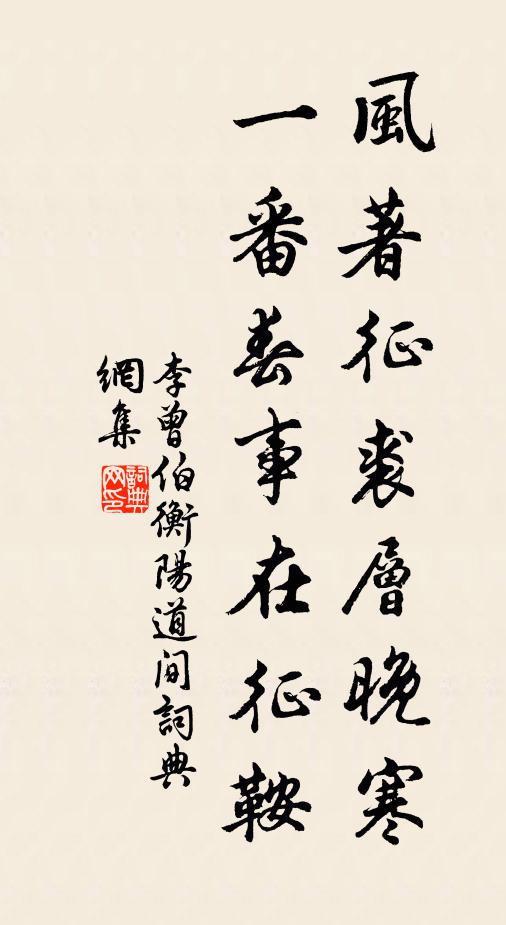 風著征裘層晚寒
一番春事在征鞍
李曾伯衡陽道间詞典
網集
詞典
网印